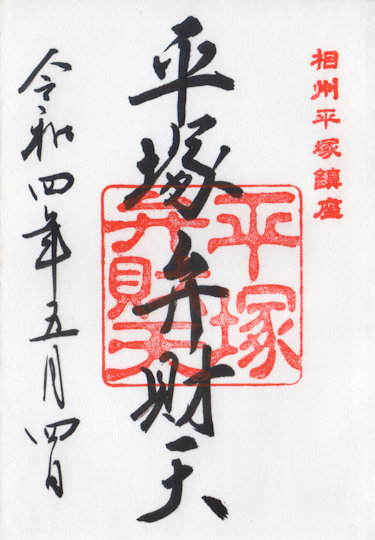 相州平塚鎮座
平塚弁財天
平塚
弁財天
令和四年五月四日